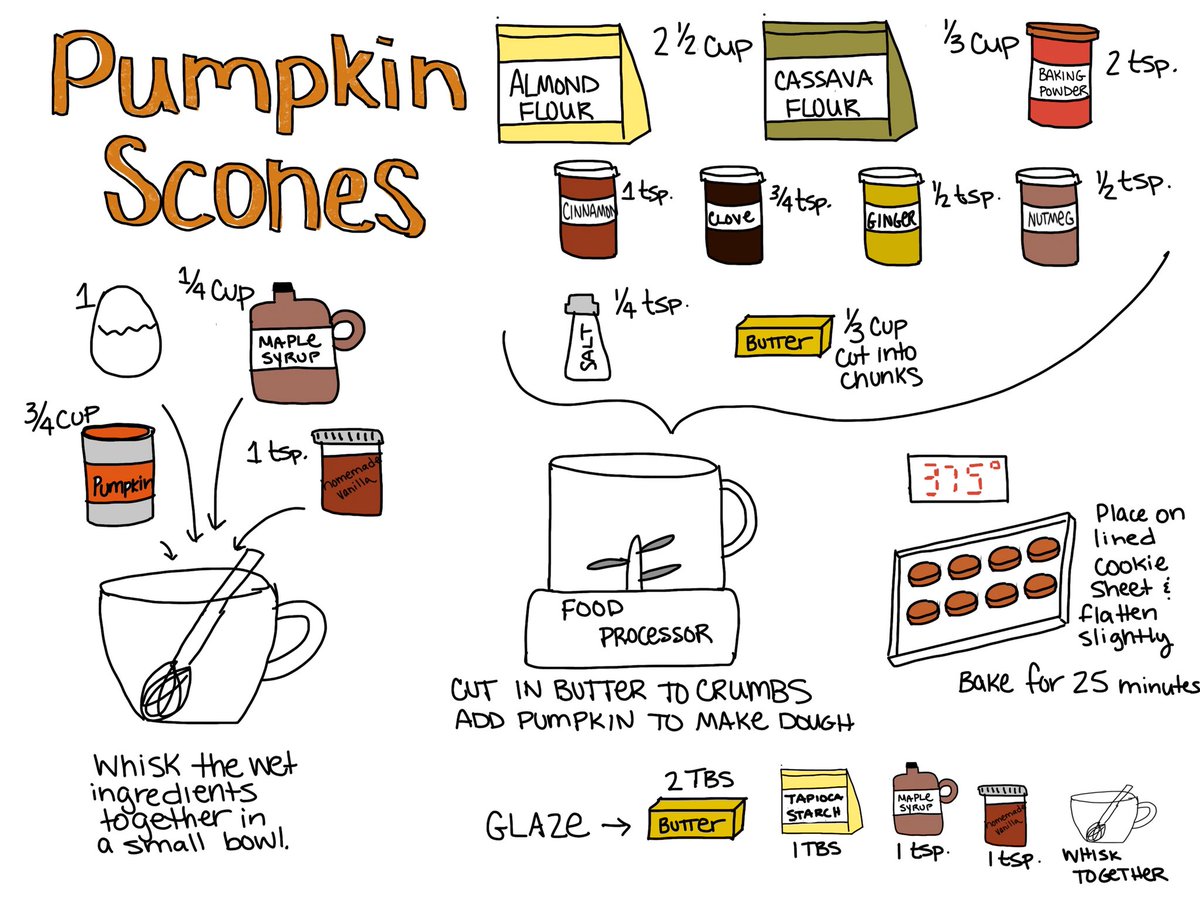 Pumpkin
Scones
ALMOND
FLOUR
2 ½ cup
CASSAVA
FLOUR
⅓ cup
BAKING
POWDER
2 tsp.
CINNAMON
1 tsp.
CLOVE
¾ tsp.
GINGER
½ tsp.
NUTMEG
½ tsp.
SALT
¼ tsp.
BUTTER
⅓ cup
cut into
chunks
1
¼ cup
MAPLE
SYRUP
¾ cup
Pumpkin
1 tsp.
homemade
vanilla
Whisk the wet
ingredients
together in
a small bowl.
FOOD
PROCESSOR
CUT IN BUTTER TO CRUMBS
ADD PUMPKIN TO MAKE DOUGH
375°
Place on
lined
cookie
sheet &
flatten
slightly
Bake for 25 minutes
GLAZE →
2 TBS
BUTTER
TAPIOCA
STARCH
1 TBS
MAPLE
SYRUP
1 tsp.
homemade
vanilla
1 tsp.
WHISK
TOGETHER